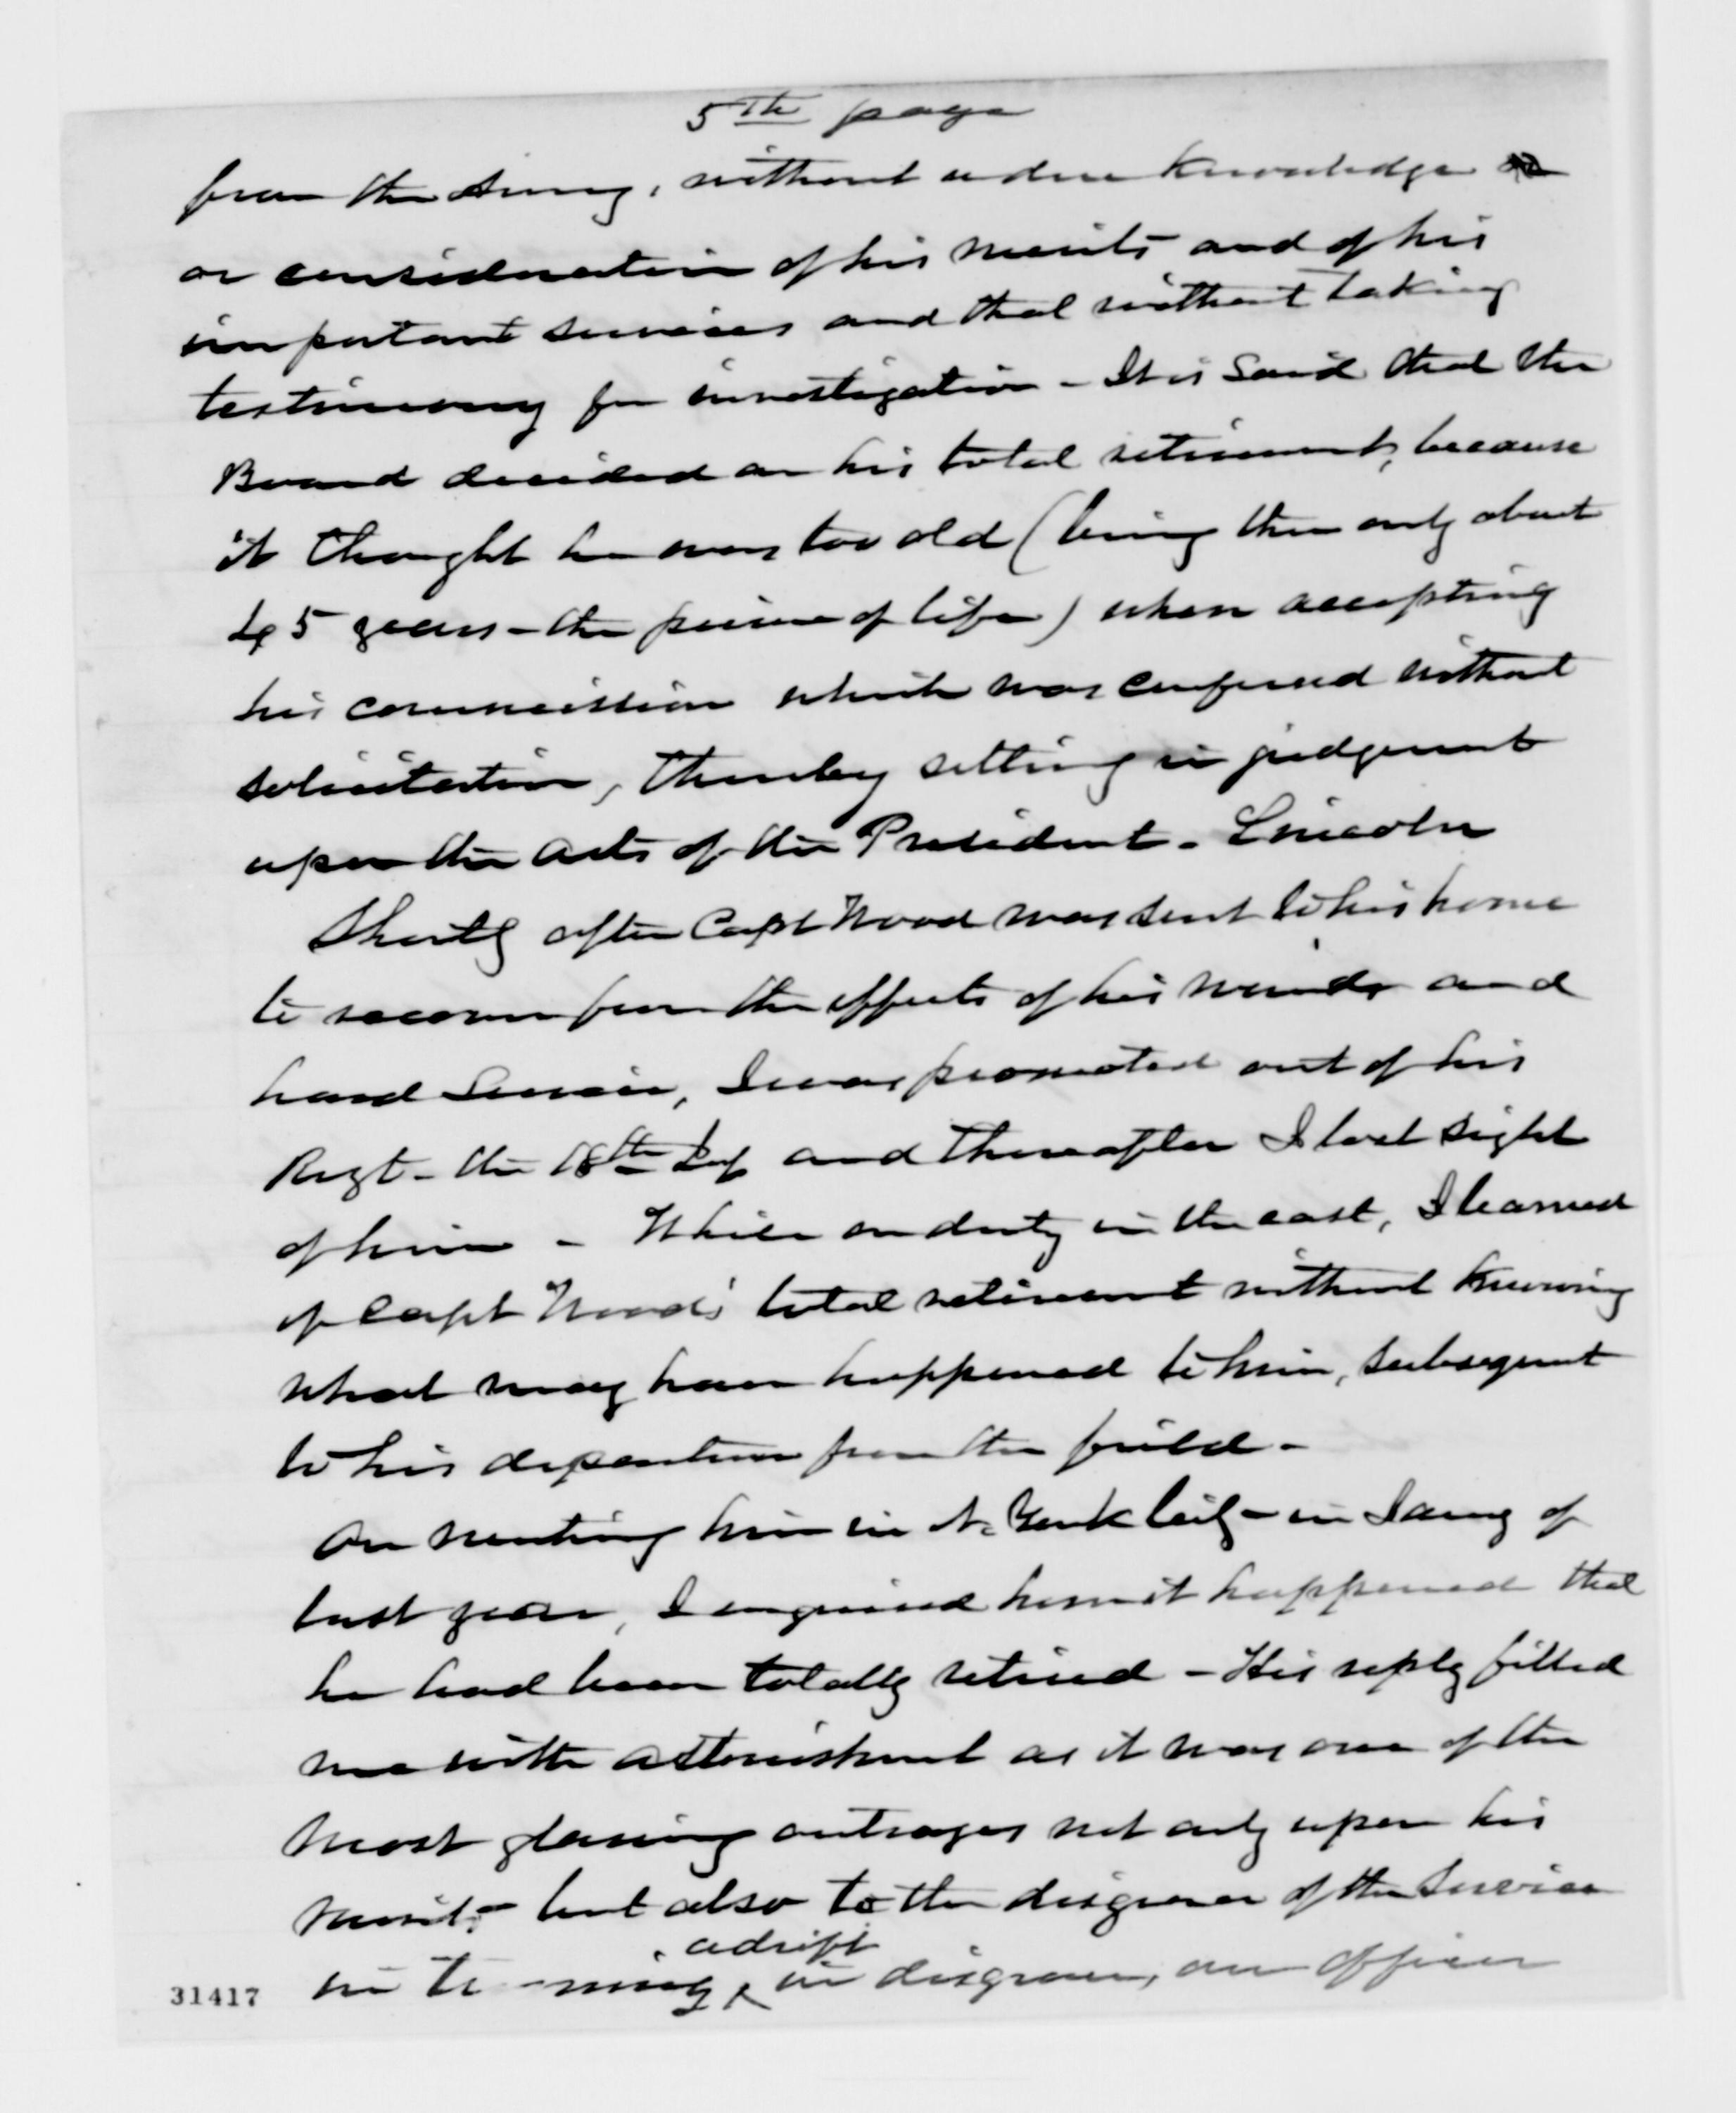 5th page
from the Army, without a due knowledge
or consideration of his merits and of his
important services and that without taking
testimony for investigation - It is said that the
Board decided on his total retirement, because
it thought he was too old (being then only about
45 years - the prime of life) when accepting
his commission which was confered without
solicitation, thereby sitting in judgement
upon the acts of the President - Lincoln
Shortly after Capt Wood was sent to his home
to recover from the effects of his wounds and
hard Service, I was promoted out of his
Regt - the 18th Inf and thereafter I lost sight
of him - While on duty in the east, I learned
of Capt Wood's total retirement without knowing
what may have happened to him, subsequent
to his departure from the field -
On meeting him in N. York City - in Jany of
last year, I enquired how it happened that
he had been totally retired - His reply filled
me with astonishment as it was one of the
most glaring outrages not only upon his
merits - but also to the disgrace of the Service
in turning adrift in disgrace, an officer
31417